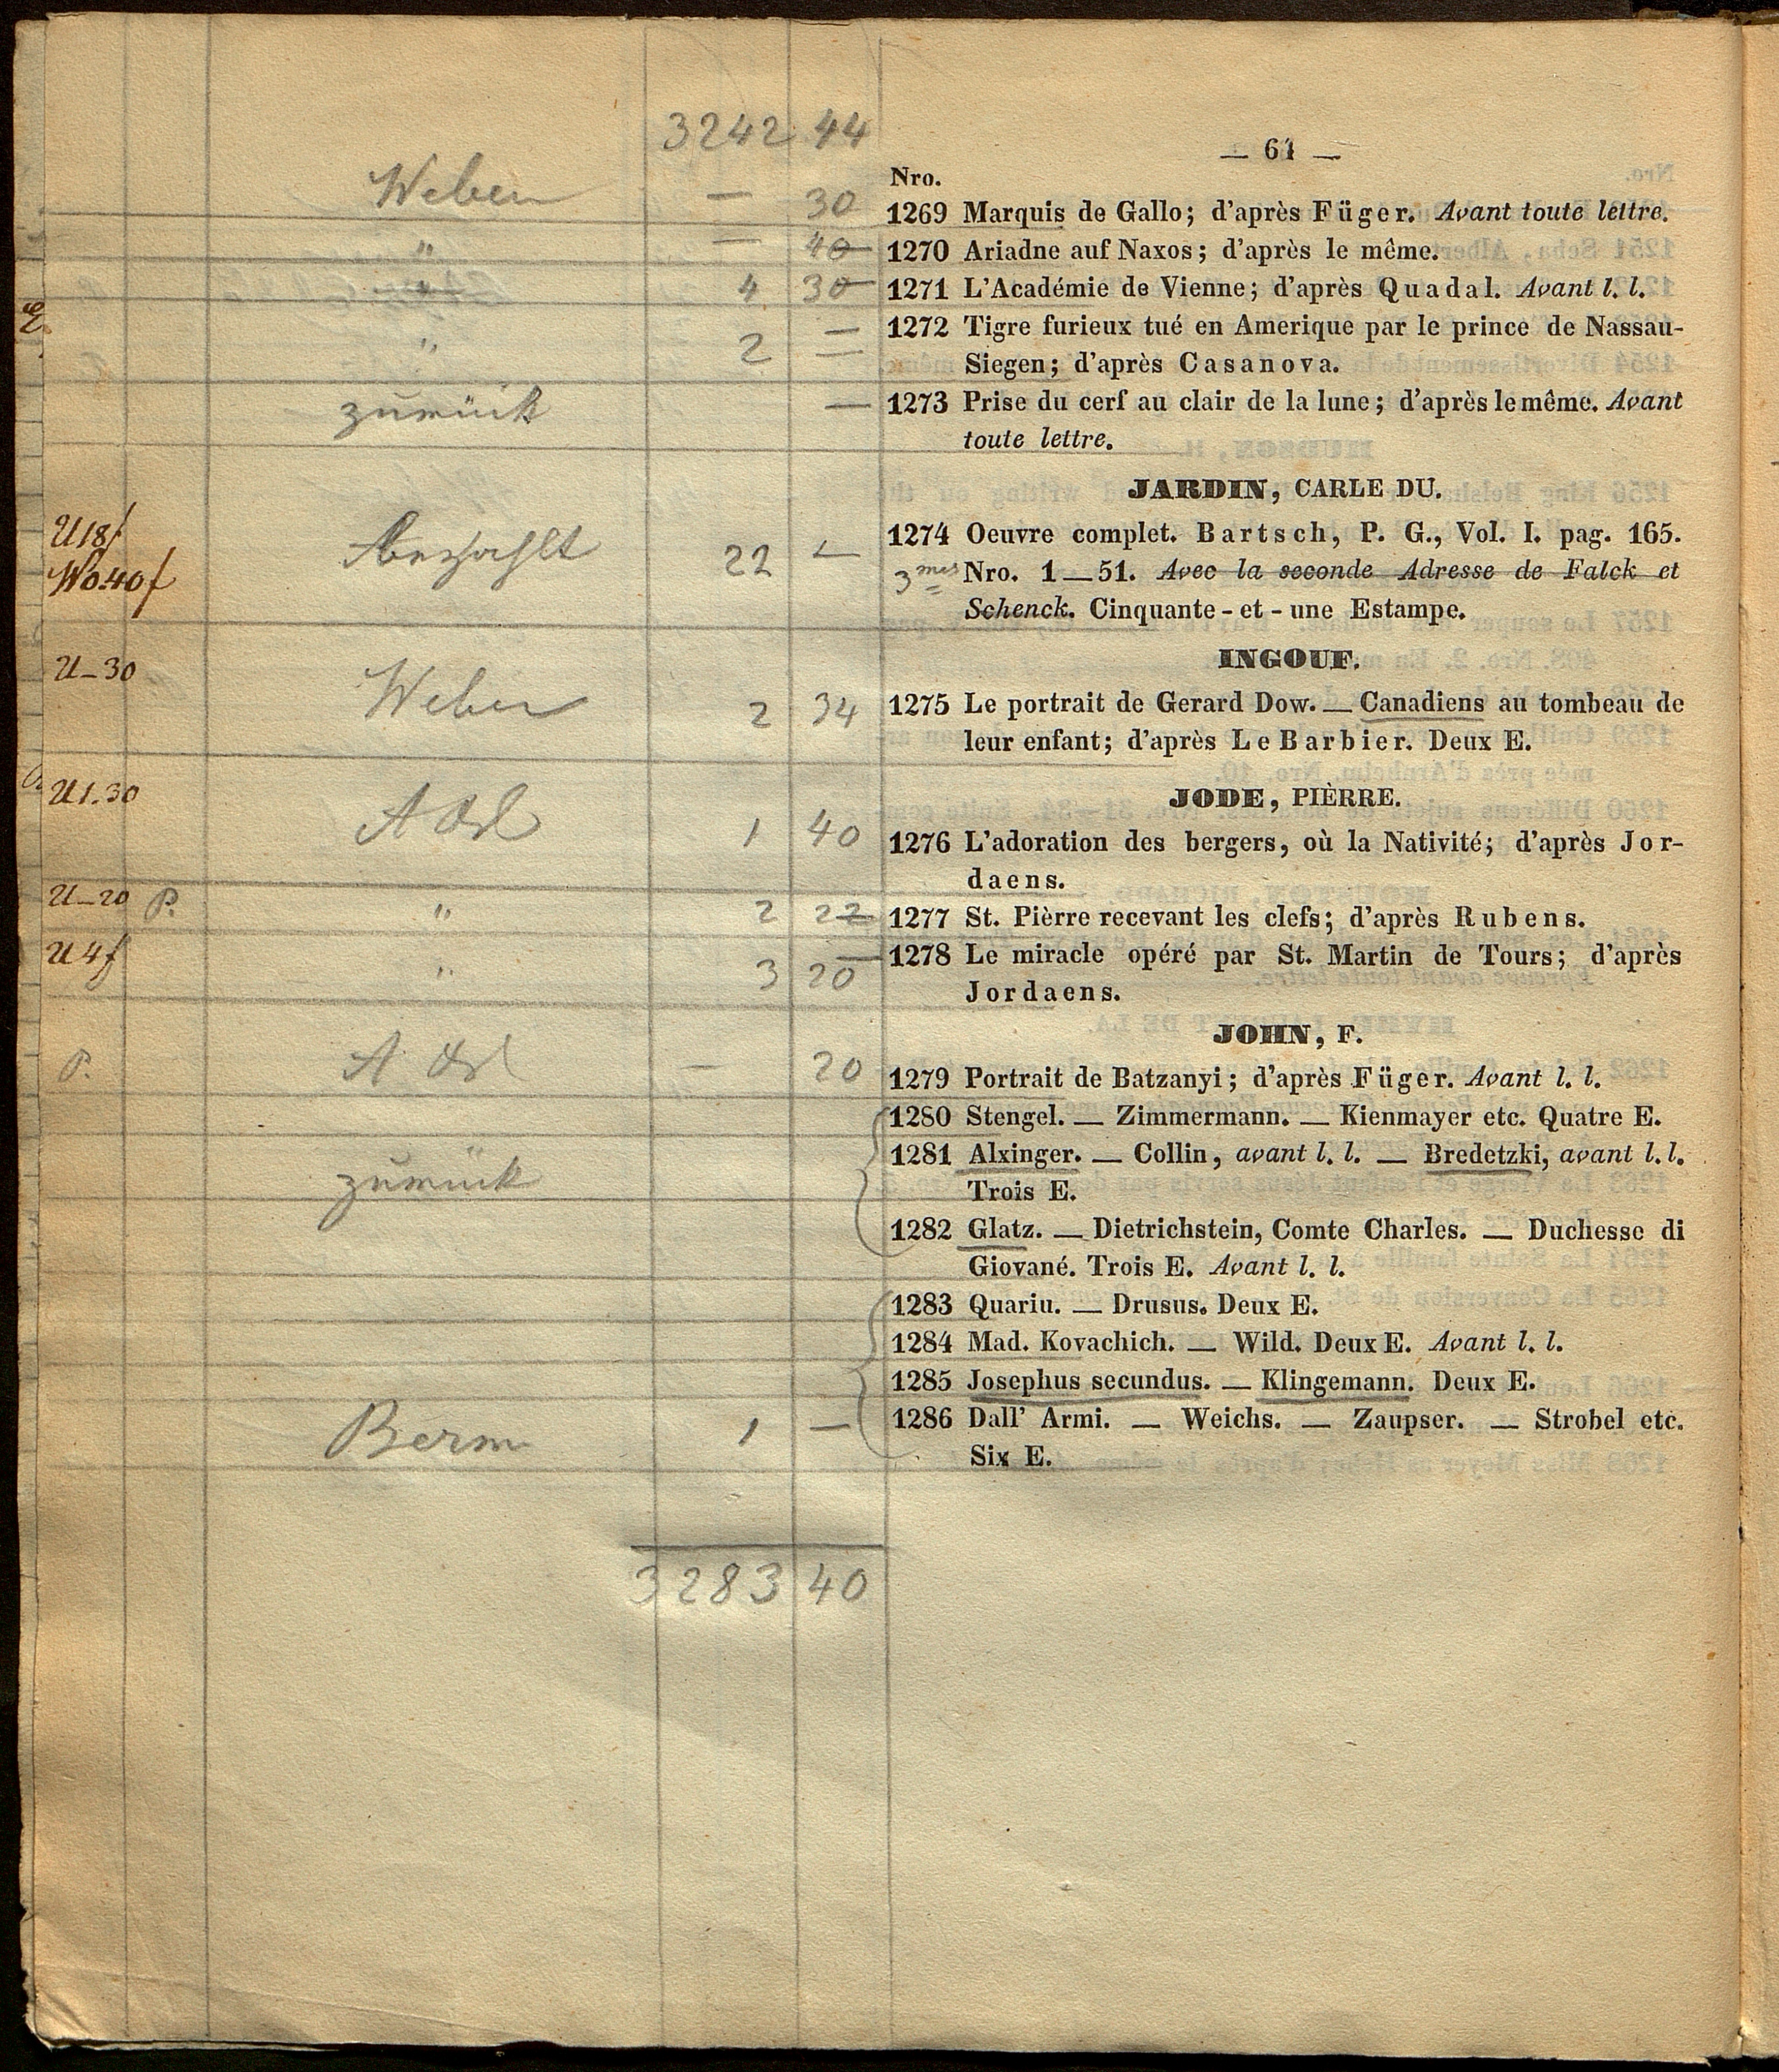 3242 44
— 61 —
Nro.
Weber — 30 1269 Marquis de Gallo; d'après Füger. Avant toute lettre.
" — 40 1270 Ariadne auf Naxos; d'après le même.
" 4 30 1271 L'Académie de Vienne; d'après Quadal. Avant l. l.
" 2 — 1272 Tigre furieux tué en Amerique par le prince de Nassau-
Siegen; d'après Casanova.
zurück — 1273 Prise du cerf au clair de la lune; d'après le même. Avant
toute lettre.
JARDIN, CARLE DU.
U 18f 22 — 1274 Oeuvre complet. Bartsch, P. G., Vol. I. pag. 165.
W0.40f 3mes Nro. 1—51. Avec la seconde Adresse de Falck et
Schenck. Cinquante-et-une Estampe.
INGOUF.
U—30 Weber 2 34 1275 Le portrait de Gerard Dow. — Canadiens au tombeau de
leur enfant; d'après Le Barbier. Deux E.
JODE, PIÈRRE.
U 1.30 1 40 1276 L'adoration des bergers, où la Nativité; d'après Jor-
daens.
U—20 P. " 2 22 1277 St. Pièrre recevant les clefs; d'après Rubens.
U 4f " 3 20 1278 Le miracle opéré par St. Martin de Tours; d'après
Jordaens.
JOHN, F.
P. — 20 1279 Portrait de Batzanyi; d'après Füger. Avant l. l.
1280 Stengel. — Zimmermann. — Kienmayer etc. Quatre E.
zurück 1281 Alxinger. — Collin, avant l. l. — Bredetzki, avant l. l.
Trois E.
1282 Glatz. — Dietrichstein, Comte Charles. — Duchesse di
Giované. Trois E. Avant l. l.
1283 Quariu. — Drusus. Deux E.
1284 Mad. Kovachich. — Wild. Deux E. Avant l. l.
1285 Josephus secundus. — Klingemann. Deux E.
Berm 1 — 1286 Dall' Armi. — Weichs. — Zaupser. — Strobel etc.
Six E.
3283 40